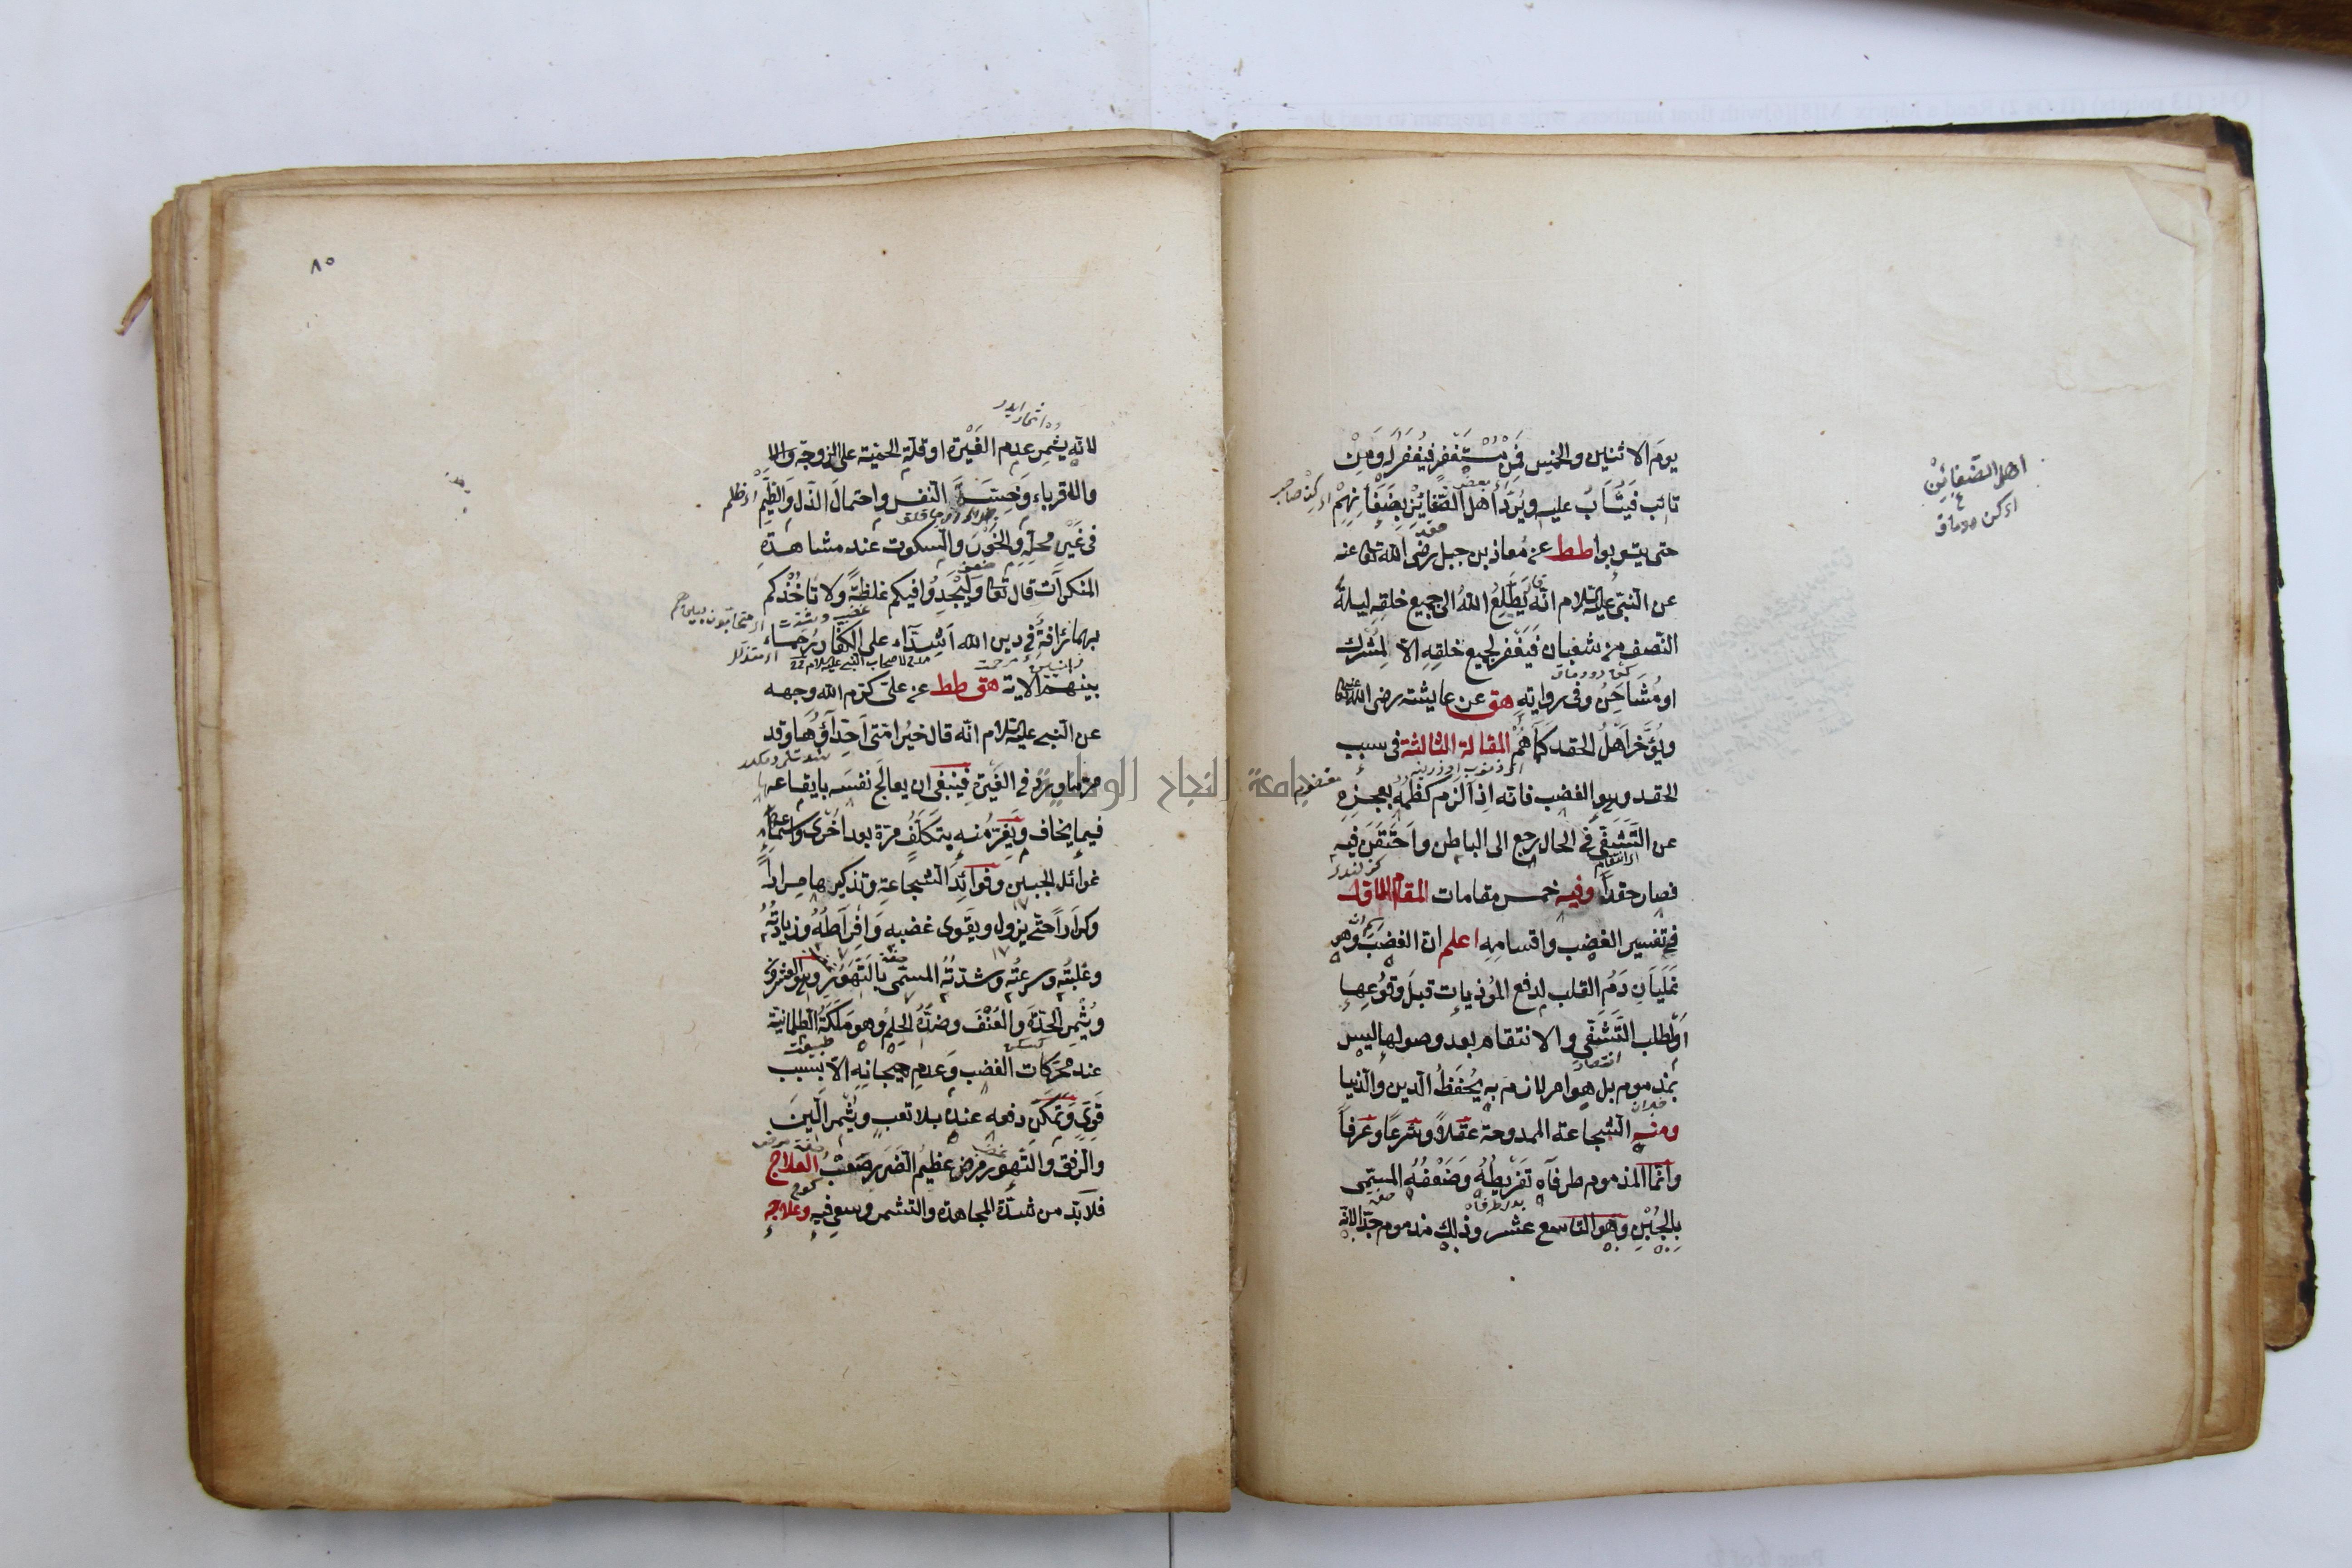 يومَ الاثنين والخميس فَمِنْ يُسْتَغْفِرٍ فيُغْفَرُ لَهُ وَمِنْ
تائب فَيُتَابُ عليه ويُرَدُّ أهلُ الضَّغَائِنِ بِضَغَائِنِهِمْ
حتى يتوبوا طط عن مُعاذ بن جبل رضى الله تعالى عنه
عن النبىّ عليه السلام انّه يَطَّلِعُ اللهُ الى جميع خلقِهِ ليلةَ
النّصف من شعبان فَيَغْفِر لجميع خلقِهِ الاّ لِمُشْرِكٍ
او مُشَاحِنٍ وفى روايةِ هق عن عايشة رضى الله عنها
ويُؤَخَّر اَهْلُ الحقد كَمَا هُمْ المقالة الثالثة فى سبب
الحقد وهو الغضب فانّه اِذا اَلْزَم كَظْمَهُ بِعَجْزِهِ
عن التَّشَفِّى فى الحال رجع الى الباطن واَحْتَقَنَ فيه
فصار حقدًا وفيه خمس مقامات المقام الاوّل
فى تفسير الغضب واقسامِهِ اعلم انّ الغضبَ وهو
غَلَيَانِ دَمِ القلبِ لِدفع المُوذِيات قبلَ وقُوعِها
اَوْ لطلبِ التَّشَفِّى والانتقام بعد وصولها ليس
بمذموم بل هو امر لازم به يُحْفَظُ الدين والدّنيا
ومنه الشّجاعة الممدوحة عقلاً وشرعًا وعُرفاً
وانّما المذموم طرفاه تَفْرِيطُهُ وَضَعْفُهُ المسمّى
بِالجُبْنِ وهو التاسع عشر وذلك مذموم جدّا لانّه
اهل الضّغائِنْ
جامعة النجاح الوطنية
٨٥
لانّه يُثمِر عدم الغَيْرة او قلّة الحميّة على الزوجة والا
والاقرباء وَخِسَّةَ النّفس واحتمالَ الذّل وَالظُّلْمِ
فى غَيْرِ محلِّهِ والخَوْرَ والسكوت عند مشاهدةِ
المنكرات قال تعالى وَلْيَجِدُوا فيكم غلظةً ولا تَأخُذْكم
بهما رَأفةٌ فى دين الله اَشِدّآء على الكفّار رُحَمَاء
بينهم الاية هق طط عن علىّ كرّم الله وجهه
عن النّبى عليه السلام انّه قال خيرُ امّتى اَحِدّآؤُهَا وقد
مرّ ما وردَ فى الغَيْرة فينبغى ان يعالج نفسَه بايقاعها
فيما يخاف ويَفِرّ منه بِتَكَلُّفٍ مرّة بعد اُخْرى
غوائلَ الجبن وفوائدَ الشّجاعةِ وتذكيرها مِرارًا
وكرارًا حتّى يزول ويقوى غضبه وَاِفْراطُهُ وزيادتُهُ
وغلبتُه وسرعتُه وشدّتُه المسمّى بالتّهَوُّر وهو العشرون
ويُثمِر الحدّةَ والعُنْفَ وضدُّهُ الحِلْمُ وهو مَلَكَةُ الطّمانينة
عند محرّكات الغضب وعدمِ هيجانِهِ الاّ بسببٍ
قَوِىٍّ وتمكّن دفعه عنده بلا تعبٍ ويُثمِر اللّينَ
والرّفق والتّهوّر مرضٌ عظيمُ الضّرَرِ صَعْبُ العلاج
فلا بدّ من شدّة المجاهدة والتشمّر وسعىٍ فيه وعلاجُه